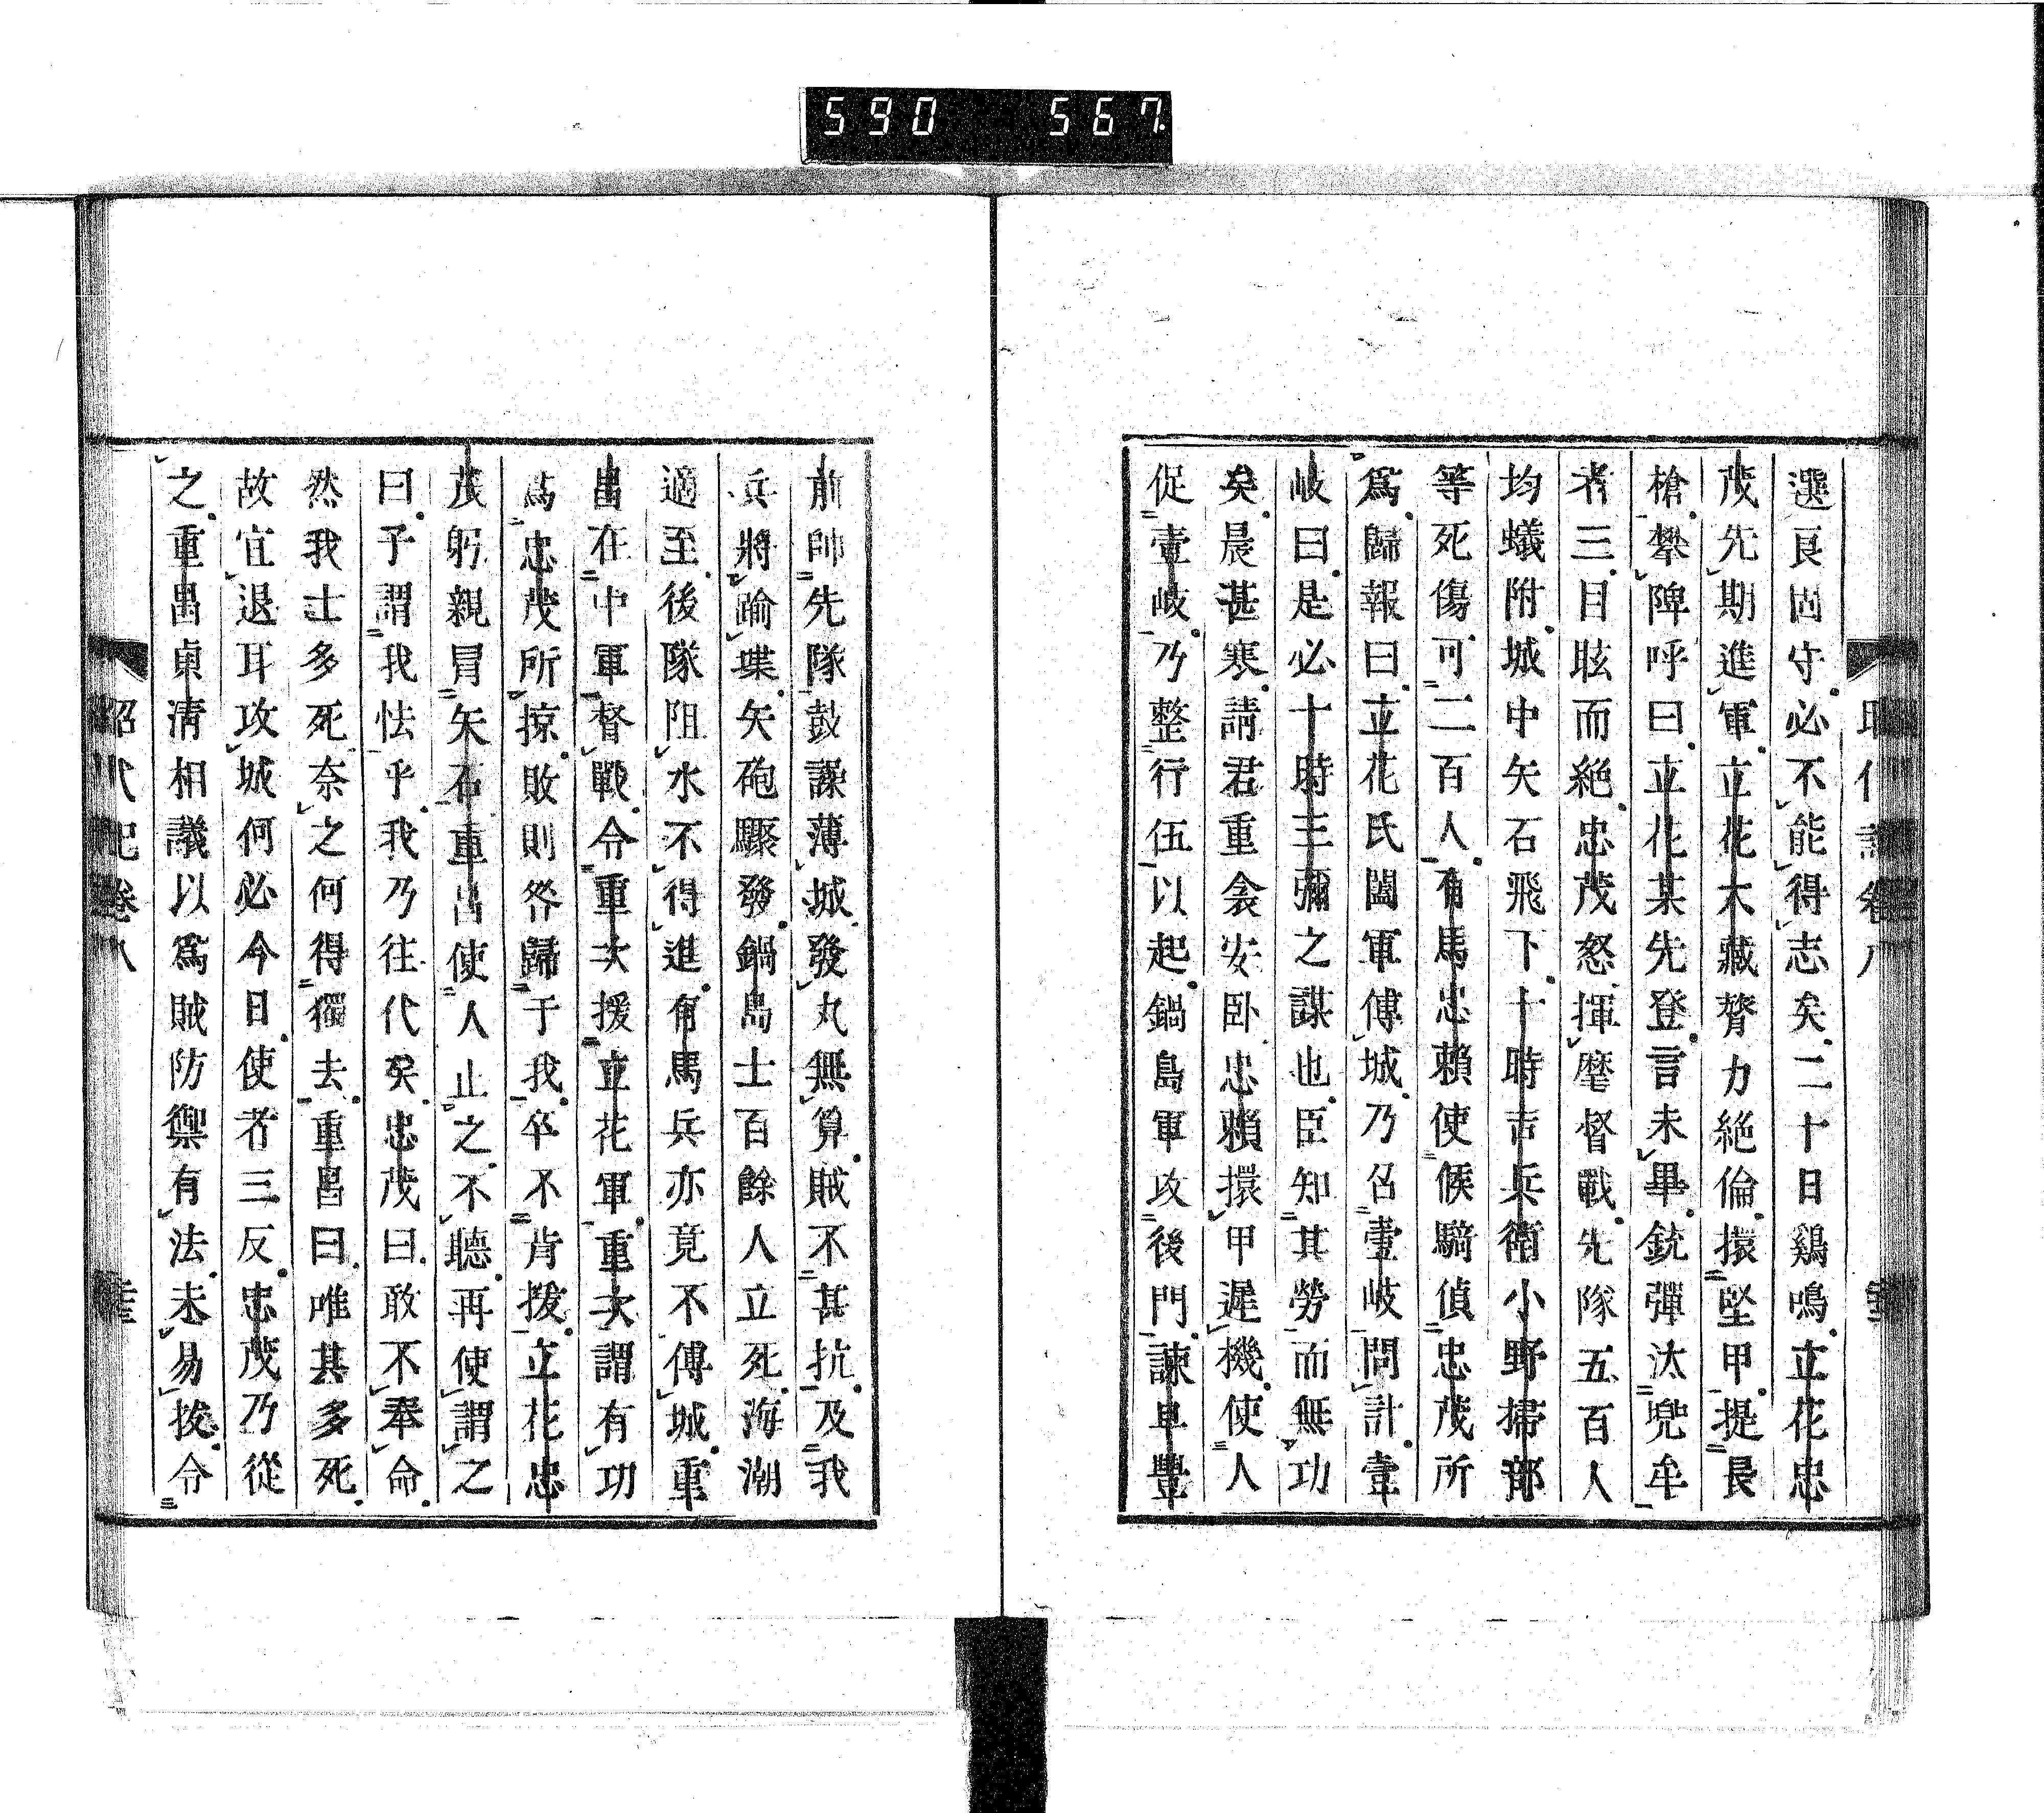 590 567
選良固守必不能得志矣二十日鷄鳴立花忠
茂先期進軍立花大藏膂力絶倫擐堅甲提長
槍攀陴呼曰立花某先登言未畢銃彈汰兜牟
者三目眩而絶忠茂怒揮麾督戰先隊五百人
均蟻附城中矢石飛下十時吉兵衞小野掃部
等死傷可二百人有馬忠賴使候騎偵忠茂所
爲歸報曰立花氏闔軍傅城乃召壹岐問計壹
岐曰是必十時三彌之謀也臣知其勞而無功
矣晨甚寒請君重衾安臥忠賴擐甲遲機使人
促壹岐乃整行伍以起鍋島軍攻後門諫早豐
前帥先隊鼓譟薄城發丸無算賊不甚抗及我
兵將踰堞矢砲驟發鍋島士百餘人立死海潮
適至後隊阻水不得進有馬兵亦竟不傅城重
昌在中軍督戰令重次援立花軍重次謂有功
爲忠茂所掠敗則咎歸于我卒不肯援立花忠
茂躬親冒矢石重昌使人止之不聽再使謂之
曰予謂我怯乎我乃往代矣忠茂曰敢不奉命
然我士多死奈之何得獨去重昌曰唯其多死
故宜退耳攻城何必今日使者三反忠茂乃從
之重昌貞淸相議以爲賊防禦有法未易拔令
昭代記卷八